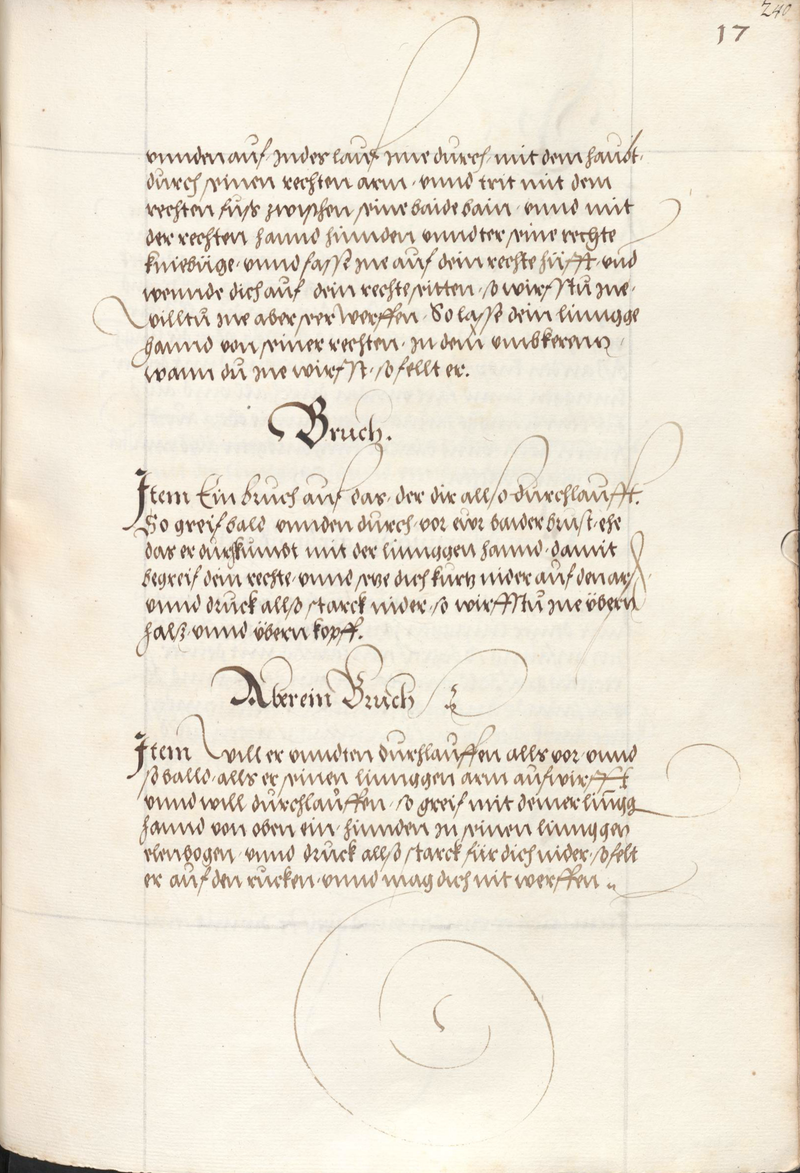 240
17
vnnden auf. Indes lauf Ime durch. mit dem haubt.
durch seinen rechten arm. vnnd trit mit dem
rechten fuss zwischen seine baide bain. vnnd mit
der rechten hannd hinnden vnndter seine rechte
kniebüge. vnnd fasse Ime auf dein rechte hüfft. vnd
wennde dich auf dein rechte seitten. so wirfstu Ime.
willtu Ime aber ser werffen. So lasse dein linngge
hannd von seiner rechten. In dem vmbkeren.
wann du Ime wirfst. so fellt er.
Bruch.
Item Ein bruch auf das. der dir allso durchlaufft.
So greif bald vnnden durch. vor ewr baider brust. ehe
das er durchkumbt mit der linnggen hannd. damit
begreif dein rechte. vnnd sytze dich kurtz nider auf den ars.
vnnd druck allso starck nider. so wirffstu Ime vbern
halss. vnnd vbern kopff.
Aber ein Bruch
Item will er vnndten durchlauffen alls vor. vnnd
so balld. alls er seinen linnggen arm aufwirfft
vnnd will durchlauffen. so greif mit deiner linngg
hannd von oben ein. hinnden In seinen linnggen
elenbogen. vnnd druck allso starck für dich nider. so felt
er auf den rucken. vnnd mag dich nit werffen